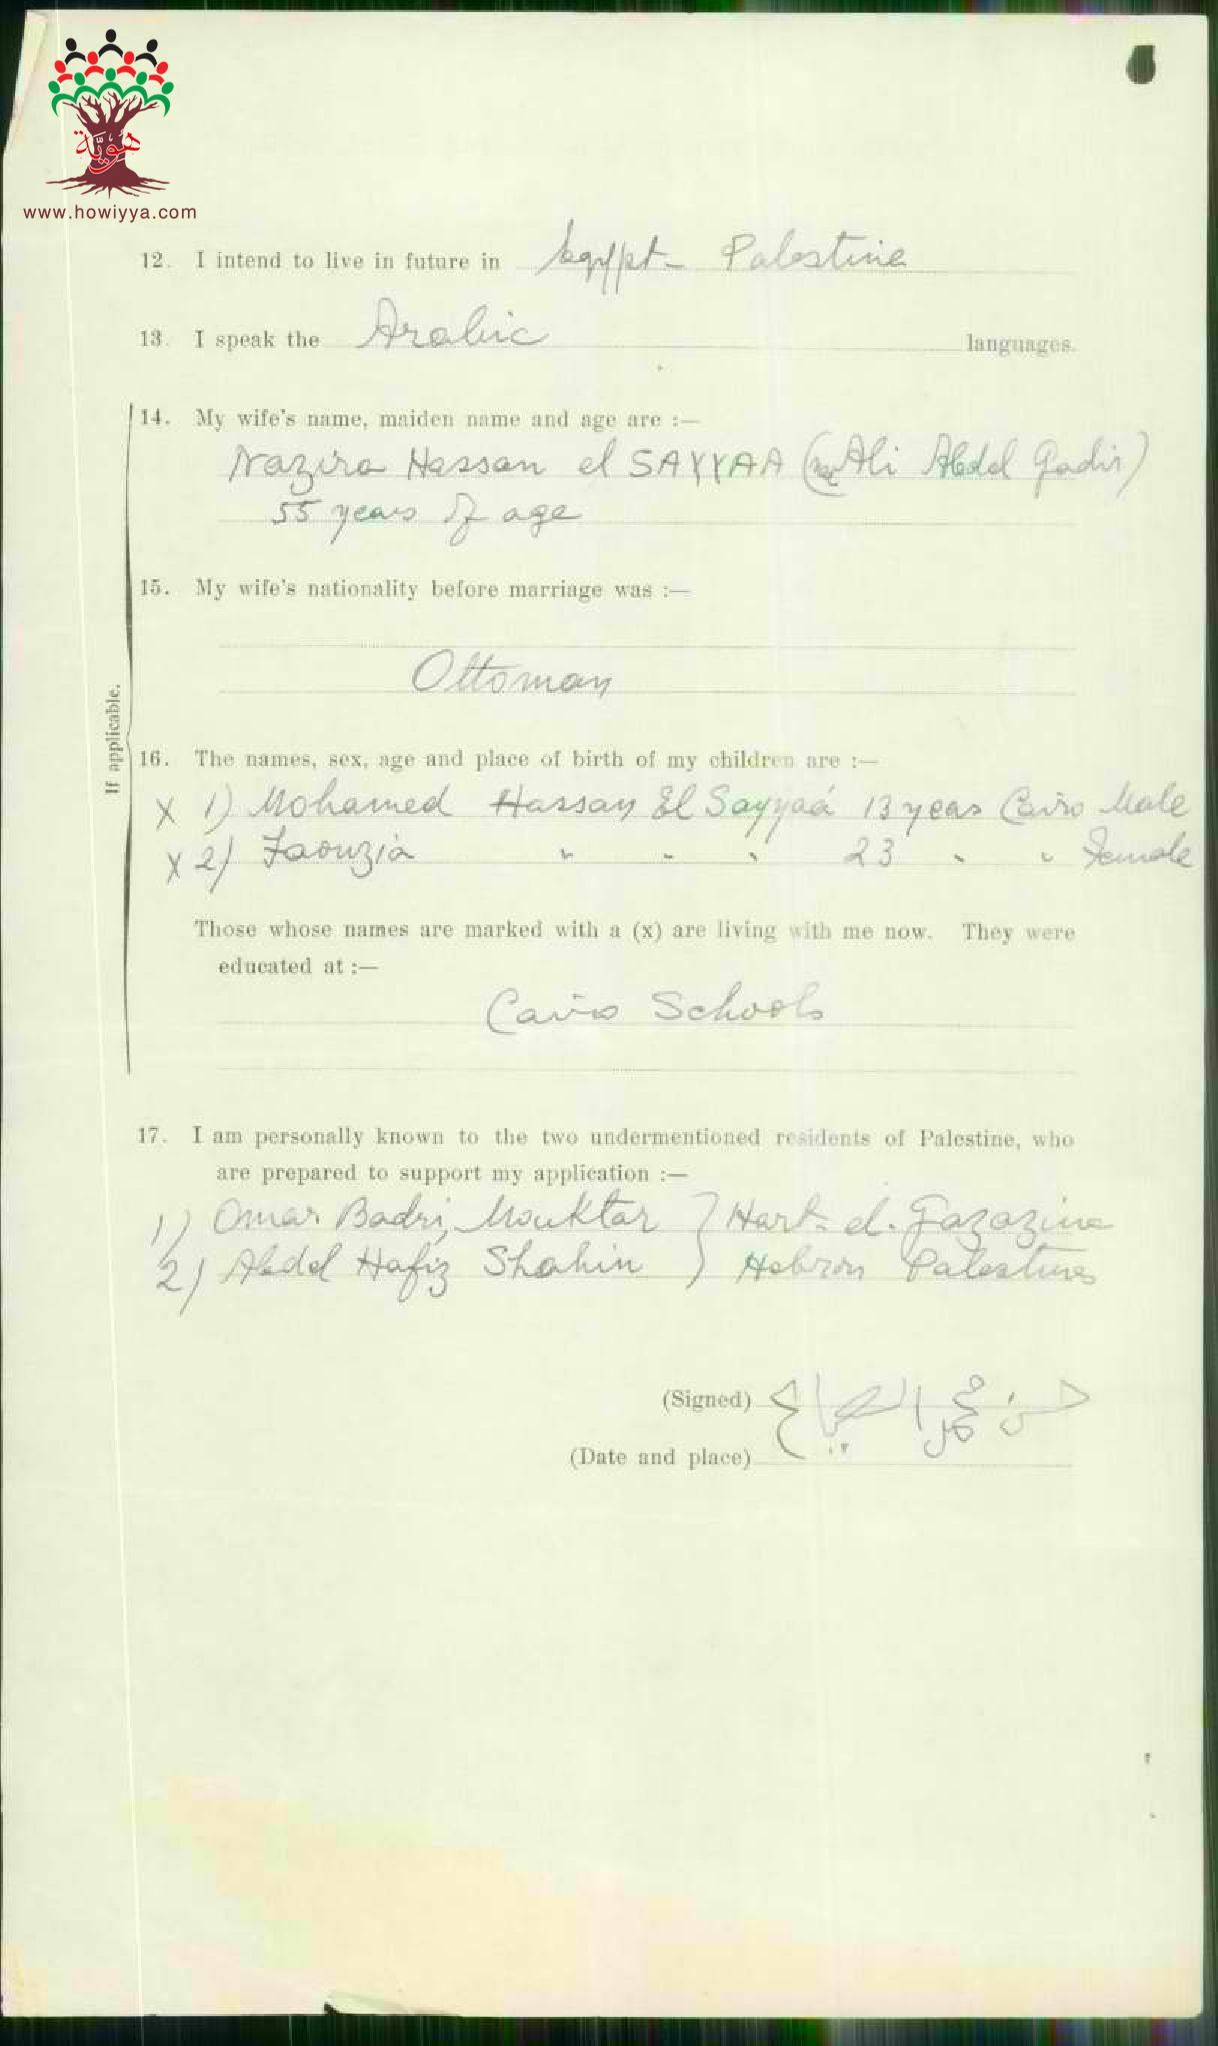 هوية
www.howiyya.com
12. I intend to live in future in Egypt - Palestine
13. I speak the Arabic languages.
If applicable.
14. My wife's name, maiden name and age are :—
Nazira Hassan el SAYYAA (née Ali Abdel Gadir)
55 years of age
15. My wife's nationality before marriage was :—
Ottoman
16. The names, sex, age and place of birth of my children are :—
X 1) Mohamed Hassan El Sayyaá 13 years Cairo Male
X 2) Faouzia " " " 23 " " Female
Those whose names are marked with a (x) are living with me now. They were
educated at :—
Cairo Schools
17. I am personally known to the two undermentioned residents of Palestine, who
are prepared to support my application :—
1) Omar Badri, Mouktar } Hart-el-Gazazine
2) Abdel Hafiz Shahin } Hebron Palestine
(Signed) حسن محمد
(Date and place)